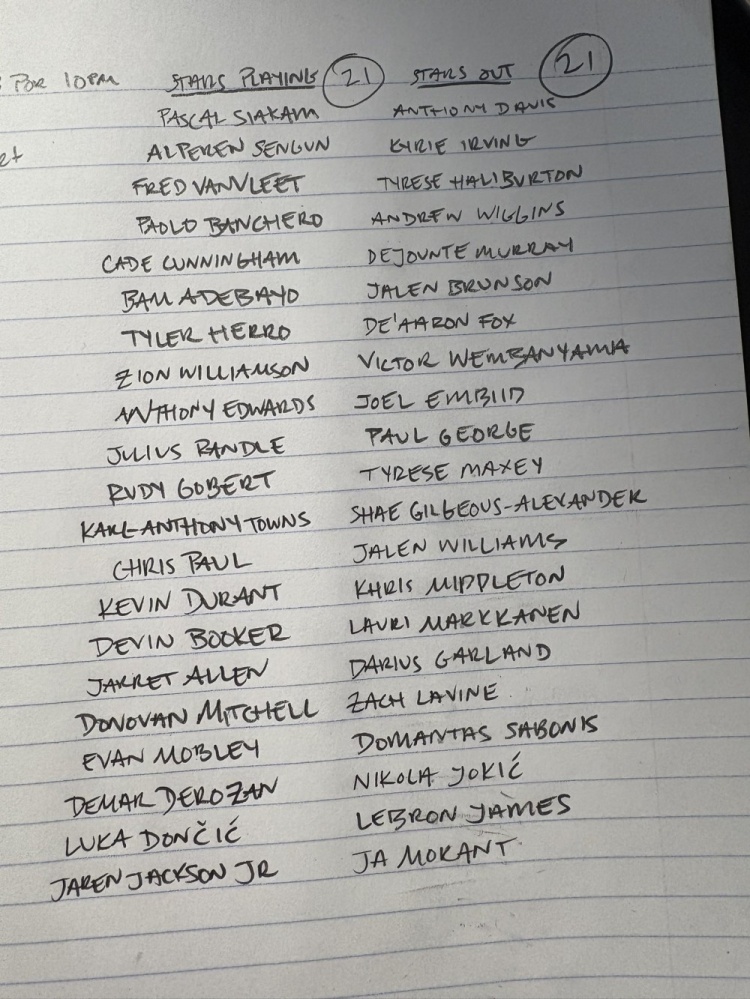 FOR 10PM STARS PLAYING 21 STARS OUT 21
PASCAL SIAKAM ANTHONY DAVIS
ALPEREN SENGUN KYRIE IRVING
FRED VANVLEET TYRESE HALIBURTON
PAOLO BANCHERO ANDREW WIGGINS
CADE CUNNINGHAM DEJOUNTE MURRAY
BAM ADEBAYO JALEN BRUNSON
TYLER HERRO DE'AARON FOX
ZION WILLIAMSON VICTOR WEMBANYAMA
ANTHONY EDWARDS JOEL EMBIID
JULIUS RANDLE PAUL GEORGE
RUDY GOBERT TYRESE MAXEY
KARL-ANTHONY TOWNS SHAE GILGEOUS-ALEXANDER
CHRIS PAUL JALEN WILLIAMS
KEVIN DURANT KHRIS MIDDLETON
DEVIN BOOKER LAURI MARKKANEN
JARRET ALLEN DARIUS GARLAND
DONOVAN MITCHELL ZACH LAVINE
EVAN MOBLEY DOMANTAS SABONIS
DEMAR DEROZAN NIKOLA JOKIĆ
LUKA DONČIĆ LEBRON JAMES
JAREN JACKSON JR JA MORANT